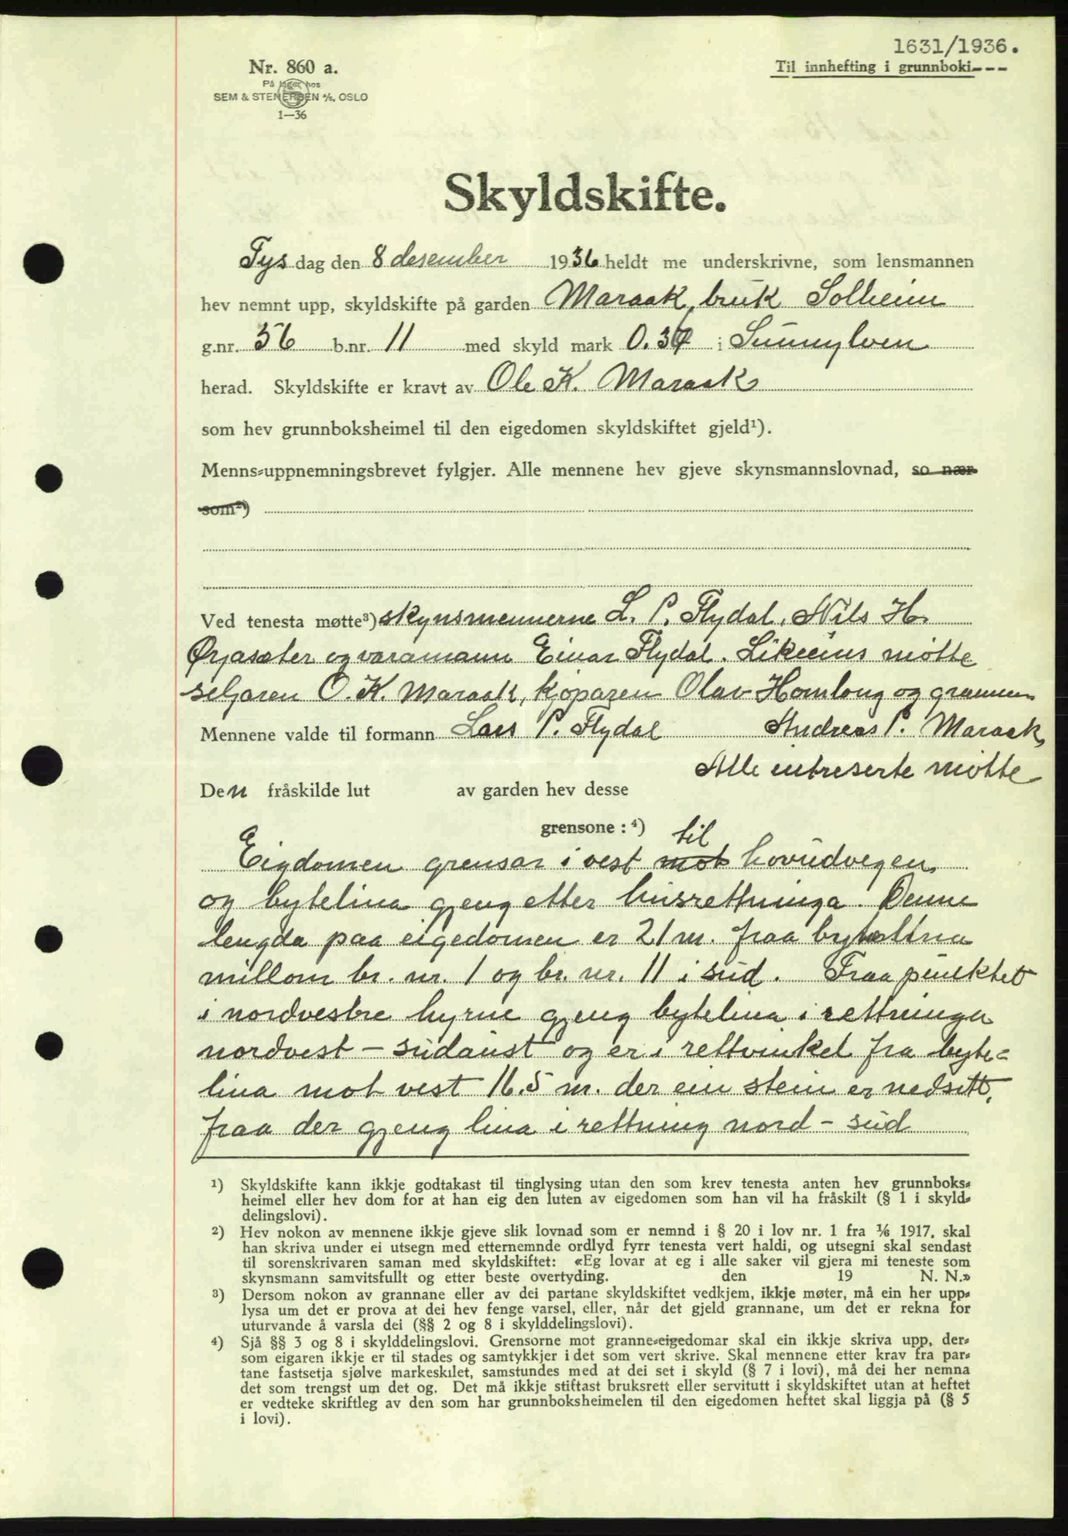 1631/1936.
Til innhefting i grunnboki---
Nr. 860 a.
På lager hos
SEM & STENERSEN A/S, OSLO
1—36
Skyldskifte.
Tysdag den 8 desember 1936 heldt me underskrivne, som lensmannen
hev nemnt upp, skyldskifte på garden Maraak, bruk Solheim
g.nr. 56 b.nr. 11 med skyld mark 0.36 i Sunnylven
herad. Skyldskifte er kravt av Ole K. Maraak
som hev grunnboksheimel til den eigedomen skyldskiftet gjeld¹).
Menns-uppnemningsbrevet fylgjer. Alle mennene hev gjeve skynsmannslovnad, so nær
som²)
Ved tenesta møtte³) skynsmennerne L. P. Flydal, Nils H.
Ørjasæter og varamann Einar Flydal. Likeeins møtte
seljaren O. K. Maraak, kjøparen Olav Homlong og grannen
Mennene valde til formann Lars P. Flydal Andreas P. Maraak,
Alle intreserte møtte
Den fråskilde lut av garden hev desse
grensone : ⁴)
til
Eigdomen grensar i vest mot hovudvegen,
og bytelina gjeng etter husrettninga. Denne
lengda paa eigedomen er 21 m. fraa bytelina
millom br. nr. 1 og br. nr. 11 i sud. Fraa punktet
i nordvestre hyrne gjeng bytelina i rettninga
nordvest – sudaust og er i rettvinkel fra byte=
lina mot vest 16.5 m. der ein stein er nedsett,
fraa der gjeng lina i rettning nord – sud
¹) Skyldskifte kann ikkje godtakast til tinglysing utan den som krev tenesta anten hev grunnboks-
heimel eller hev dom for at han eig den luten av eigedomen som han vil ha fråskilt (§ 1 i skyld-
delingslovi).
²) Hev nokon av mennene ikkje gjeve slik lovnad som er nemnd i § 20 i lov nr. 1 fra 1/6 1917, skal
han skriva under ei utsegn med etternemnde ordlyd fyrr tenesta vert haldi, og utsegni skal sendast
til sorenskrivaren saman med skyldskiftet: «Eg lovar at eg i alle saker vil gjera mi teneste som
skynsmann samvitsfullt og etter beste overtyding. den 19 N. N.»
³) Dersom nokon av grannane eller av dei partane skyldskiftet vedkjem, ikkje møter, må ein her upp-
lysa um det er prova at dei hev fenge varsel, eller, når det gjeld grannane, um det er rekna for
uturvande å varsla dei (§§ 2 og 8 i skylddelingslovi).
⁴) Sjå §§ 3 og 8 i skylddelingslovi. Grensorne mot granne-eigedomar skal ein ikkje skriva upp, der-
som eigaren ikkje er til stades og samtykkjer i det som vert skrive. Skal mennene etter krav fra par-
tane fastsetja sjølve markeskilet, samstundes med at dei set i skyld (§ 7 i lovi), må dei her nemna
det som trengst um det og. Det må ikkje stiftast bruksrett eller servitutt i skyldskiftet utan at heftet
er vedteke skriftleg av den som har grunnboksheimelen til den eigedomen heftet skal liggja på (§ 5
i lovi).